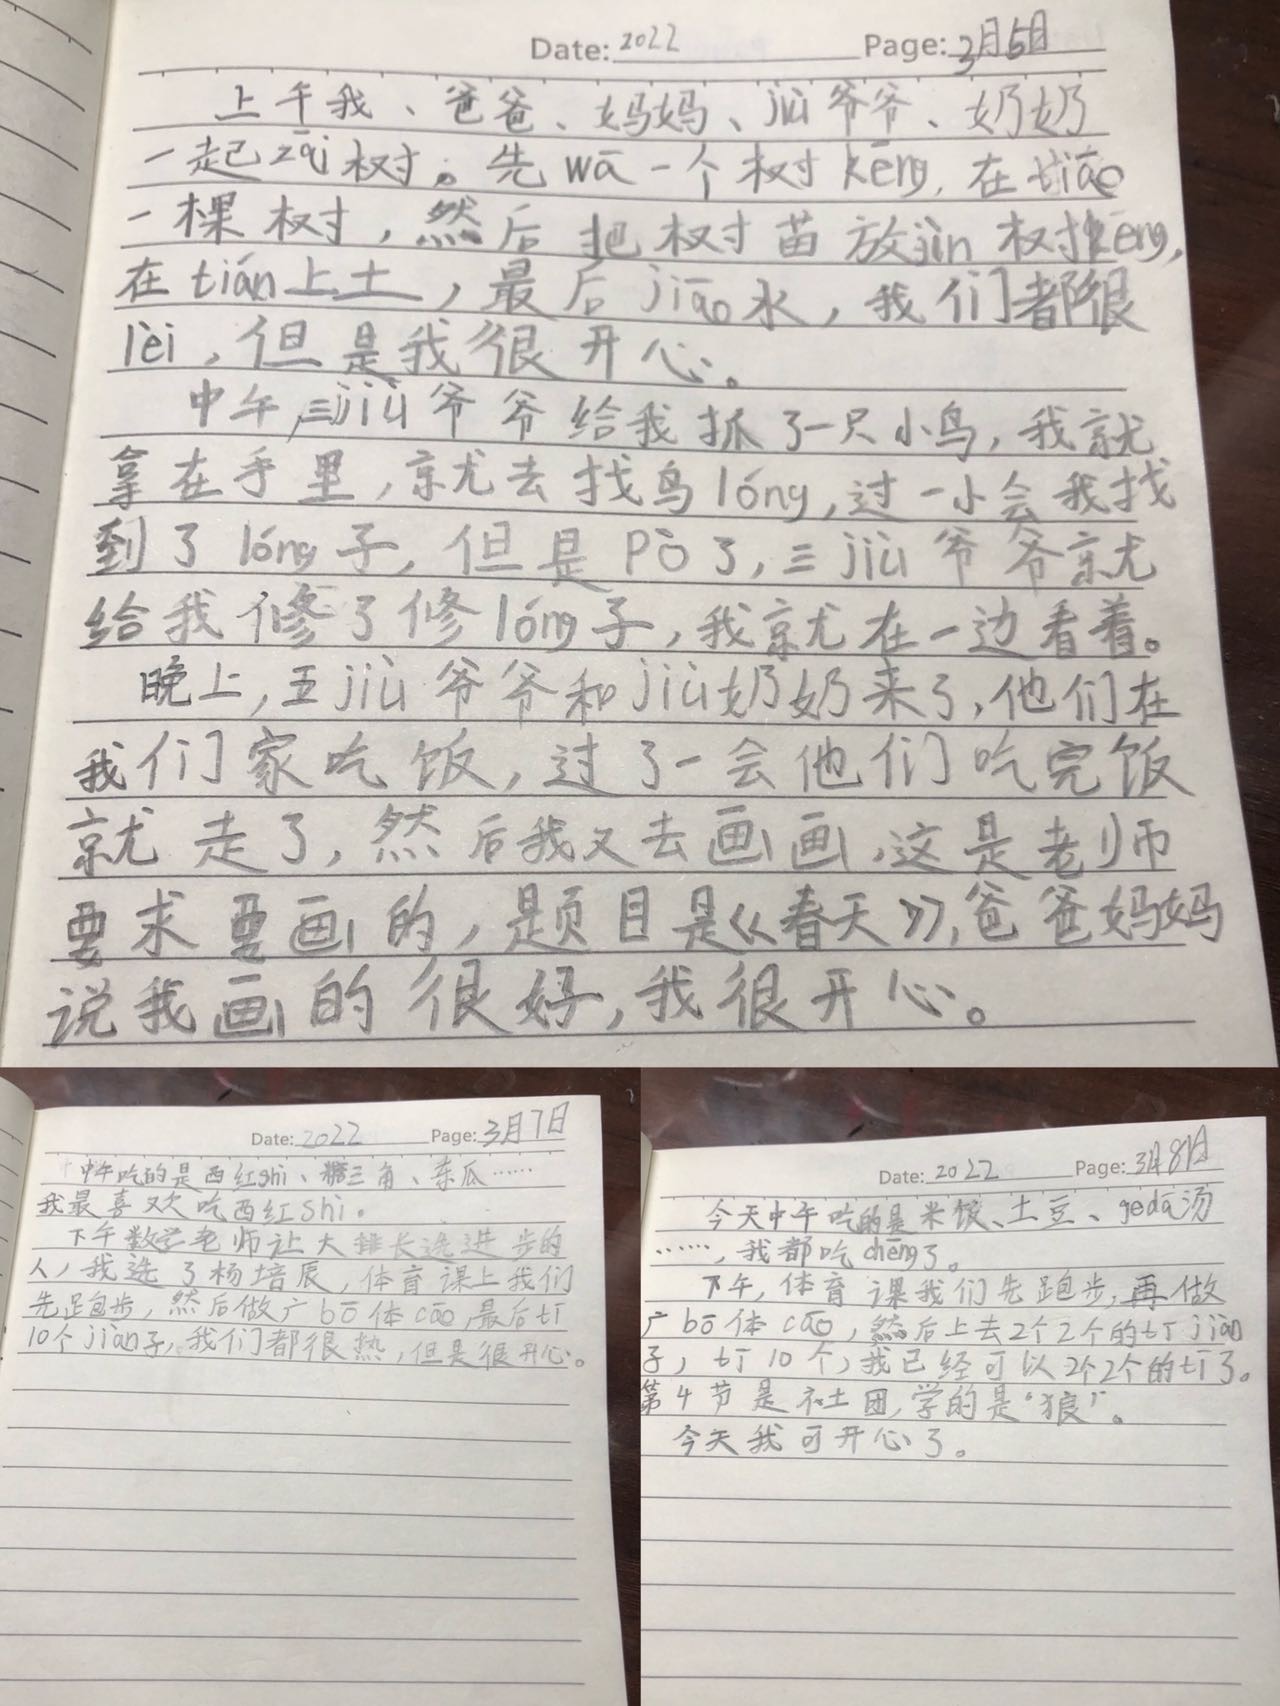 Date: 2022 Page: 3月6日
上午我、爸爸、妈妈、jiù爷爷、奶奶
一起zāi树。先wā一个树kēng,在tiāo
一棵树,然后把树苗放jìn树kēng,
在tián上土,最后jiāo水,我们都很
lèi,但是我很开心。
中午,三jiù爷爷给我抓了一只小鸟,我就
拿在手里,就去找鸟lóng,过一小会我找
到了lóng子,但是Pò了,三jiù爷爷就
给我修了修lóng子,我就在一边看着。
晚上,五jiù爷爷和jiù奶奶来了,他们在
我们家吃饭,过了一会他们吃完饭
就走了,然后我又去画画,这是老师
要求要画的,题目是《春天》,爸爸妈妈
说我画的很好,我很开心。
Date: 2022 Page: 3月7日
中午吃的是西红shì、糖三角、冬瓜……
我最喜欢吃西红shì。
下午数学老师让大排长选进步的
人,我选了杨培辰,体育课上我们
先跑步,然后做广bō体cāo,最后tī
10个jiàn子,我们都很热,但是很开心。
Date: 2022 Page: 3月8日
今天中午吃的是米饭、土豆、gedā汤
……,我都吃chēng了。
下午,体育课我们先跑步,再做
广bō体cāo,然后上去2个2个的tī jiàn
子,tī 10个,我已经可以2个2个的tī了。
第4节是社团,学的是“狼”。
今天我可开心了。